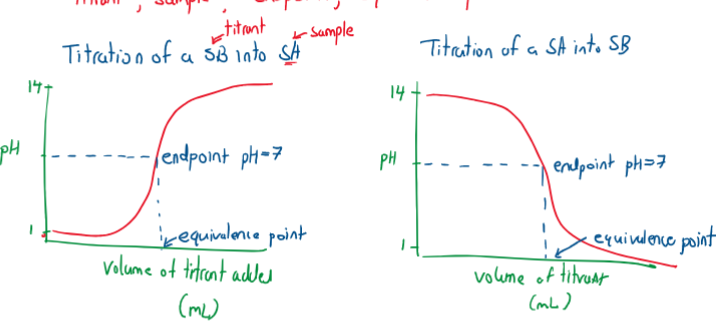 titrant, sample,
titrant
sample
Titration of a SB into SA
14
pH
endpoint pH=7
1
equivalence point
Volume of titrant added
(mL)
Titration of a SA into SB
14
pH
endpoint pH=7
1
equivalence point
volume of titrant
(mL)